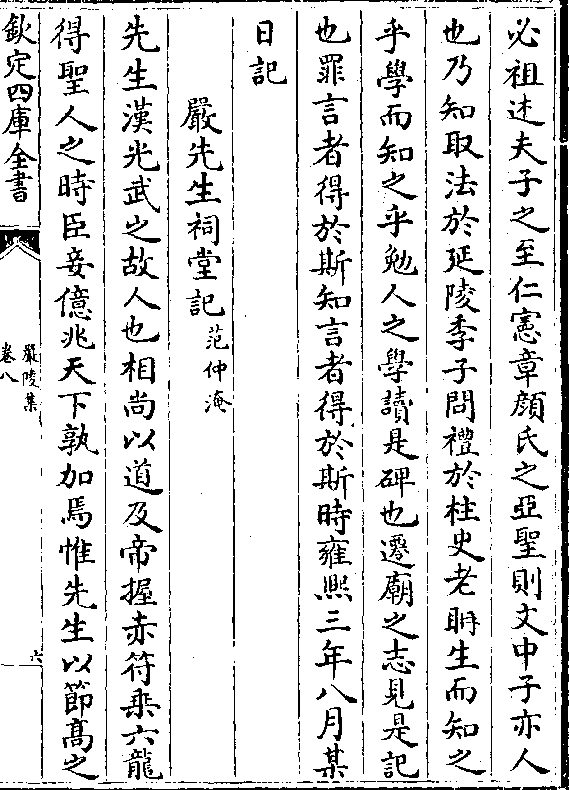 必祖述夫子之至仁憲章顔氏之亞聖則文中子亦人
也乃知取法於延陵季子問禮於柱史老耼生而知之
乎學而知之乎勉人之學讀是碑也遷廟之志見是記
也罪言者得於斯知言者得於斯時雍熙三年八月某
日記
嚴先生祠堂記 范仲淹
先生漢光武之故人也相尚以道及帝握赤符乗六龍
得聖人之時臣妾億兆天下孰加焉惟先生以節髙之
欽定四庫全書
嚴陵集
卷八
六